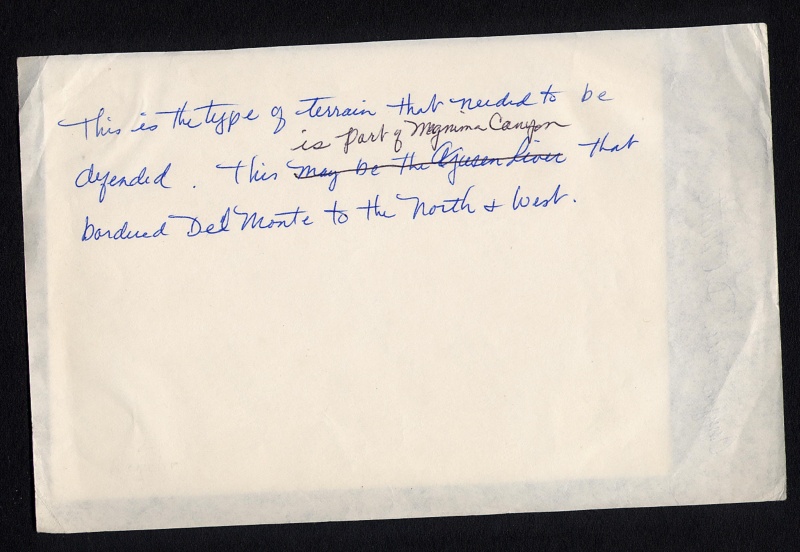 This is the type of terrain that needed to be
is part of Mgnima Canyon
defended. This may be the Cagayan River that
bordered Del Monte to the North & West.